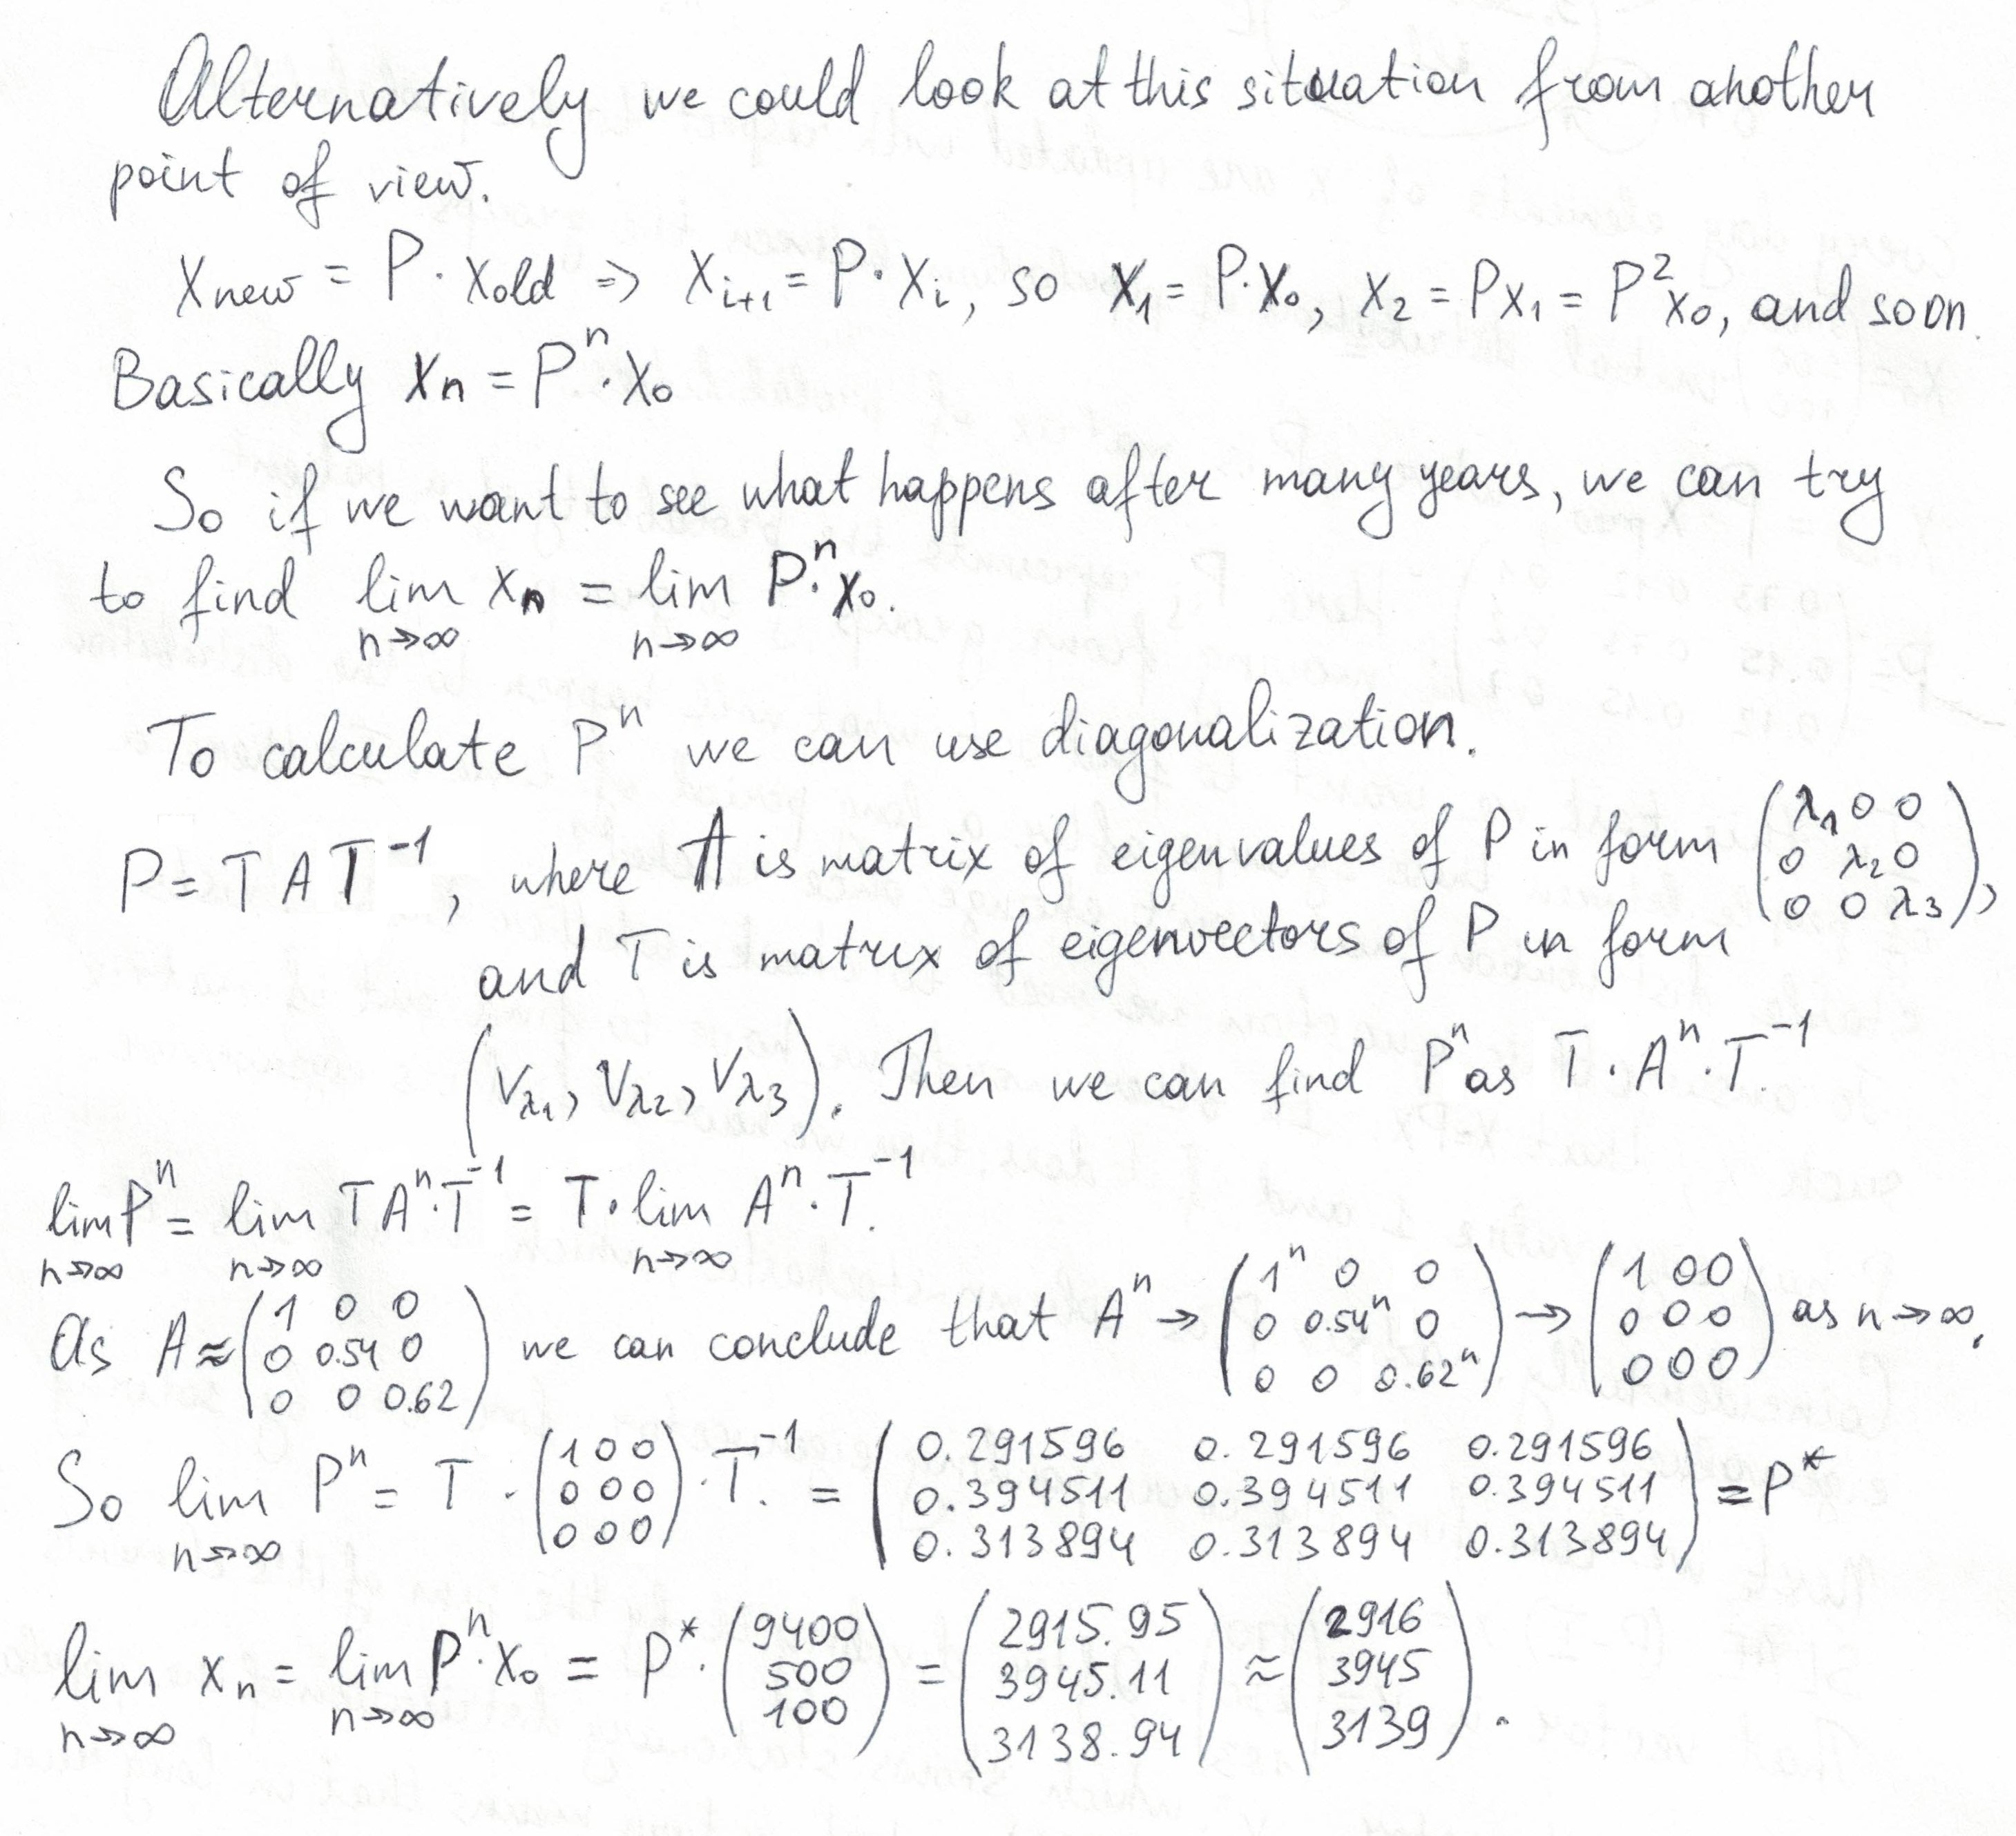 Alternatively we could look at this situation from another
point of view.
x_new = P · x_old ⇒ x_{i+1} = P · x_i, so x_1 = P·x_0, x_2 = Px_1 = P^2 x_0, and so on.
Basically x_n = P^n · x_0
So if we want to see what happens after many years, we can try
to find lim_{n→∞} x_n = lim_{n→∞} P^n · x_0.
To calculate P^n we can use diagonalization.
P = T A T^{-1}, where A is matrix of eigenvalues of P in form (λ_1 0 0 / 0 λ_2 0 / 0 0 λ_3),
and T is matrix of eigenvectors of P in form
(V_{λ1}, V_{λ2}, V_{λ3}). Then we can find P^n as T · A^n · T^{-1}.
lim_{n→∞} P^n = lim_{n→∞} T A^n · T^{-1} = T · lim_{n→∞} A^n · T^{-1}.
As A ≈ (1 0 0 / 0 0.54 0 / 0 0 0.62) we can conclude that A^n → (1^n 0 0 / 0 0.54^n 0 / 0 0 0.62^n) → (1 0 0 / 0 0 0 / 0 0 0) as n→∞.
So lim_{n→∞} P^n = T · (1 0 0 / 0 0 0 / 0 0 0) · T^{-1}. = (0.291596 0.291596 0.291596 / 0.394511 0.394511 0.394511 / 0.313894 0.313894 0.313894) = P*
lim_{n→∞} x_n = lim_{n→∞} P^n · x_0 = P* · (9400 / 500 / 100) = (2915.95 / 3945.11 / 3138.94) ≈ (2916 / 3945 / 3139).